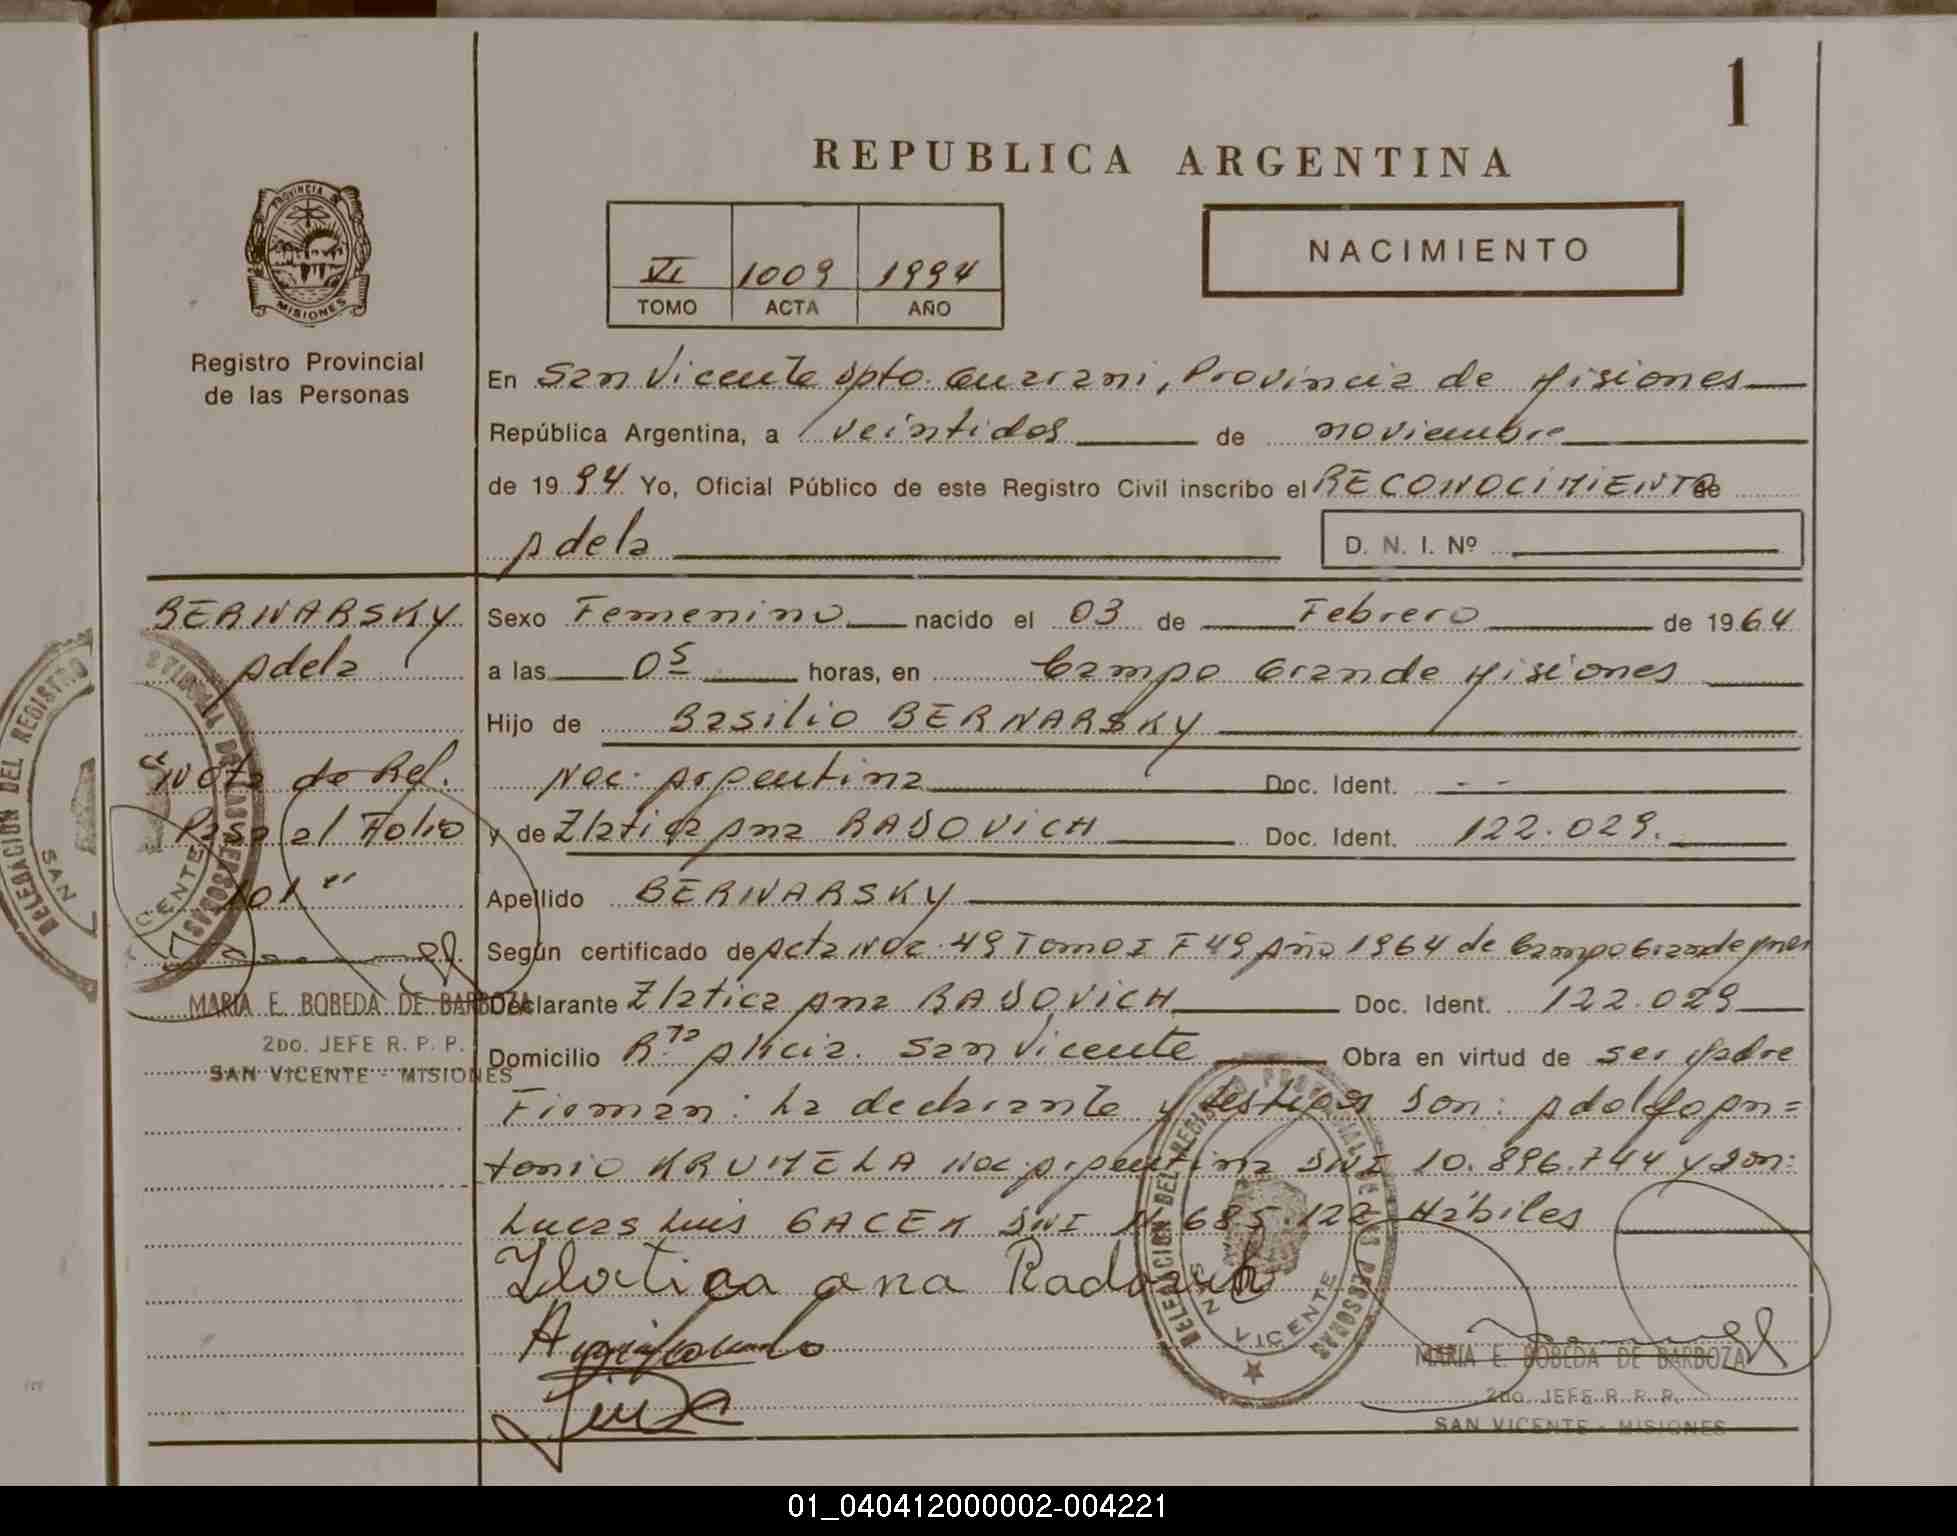 1
REPUBLICA ARGENTINA
PROVINCIA DE
MISIONES
VI 1009 1994
TOMO ACTA AÑO
NACIMIENTO
Registro Provincial
de las Personas
En San Vicente Dpto. Guarani, Provincia de Misiones
República Argentina, a veintidos de noviembre
de 1994 Yo, Oficial Público de este Registro Civil inscribo el RECONOCIMIENTO de
Adela D. N. I. Nº
BERNARSKY
Adela
"Nota de Ref.
Pasa al Folio
101"
MARIA E. BOBEDA DE BARBOZA
2DO. JEFE R. P. P.
SAN VICENTE - MISIONES
Sexo Femenino nacido el 03 de Febrero de 1964
a las 05 horas, en Campo Grande Misiones
Hijo de Basilio BERNARSKY
Nac. Argentina Doc. Ident. - -
y de Zlatica Ana RADOVICH Doc. Ident. 122.029.
Apellido BERNARSKY
Según certificado de Acta Nac. 49 Tomo I F 49 Año 1964 de Campo Grande Mnes
Declarante Zlatica Ana RADOVICH Doc. Ident. 122.029
Domicilio Rta Alicia. San Vicente Obra en virtud de ser Madre
Firman: La declarante y testigos Son: Adolfo An=
tonio KRUMELA Nac. Argentina DNI 10.896.744 y Don:
Lucas Luis GACEK DNI 11.685.122 Hábiles
Zlatica ana Radovich
DELEGACION DEL REGISTRO PROVINCIAL DE LAS PERSONAS
SAN VICENTE
MARIA E. BOBEDA DE BARBOZA
2DO. JEFE R. R. P.
SAN VICENTE - MISIONES
01_040412000002-004221